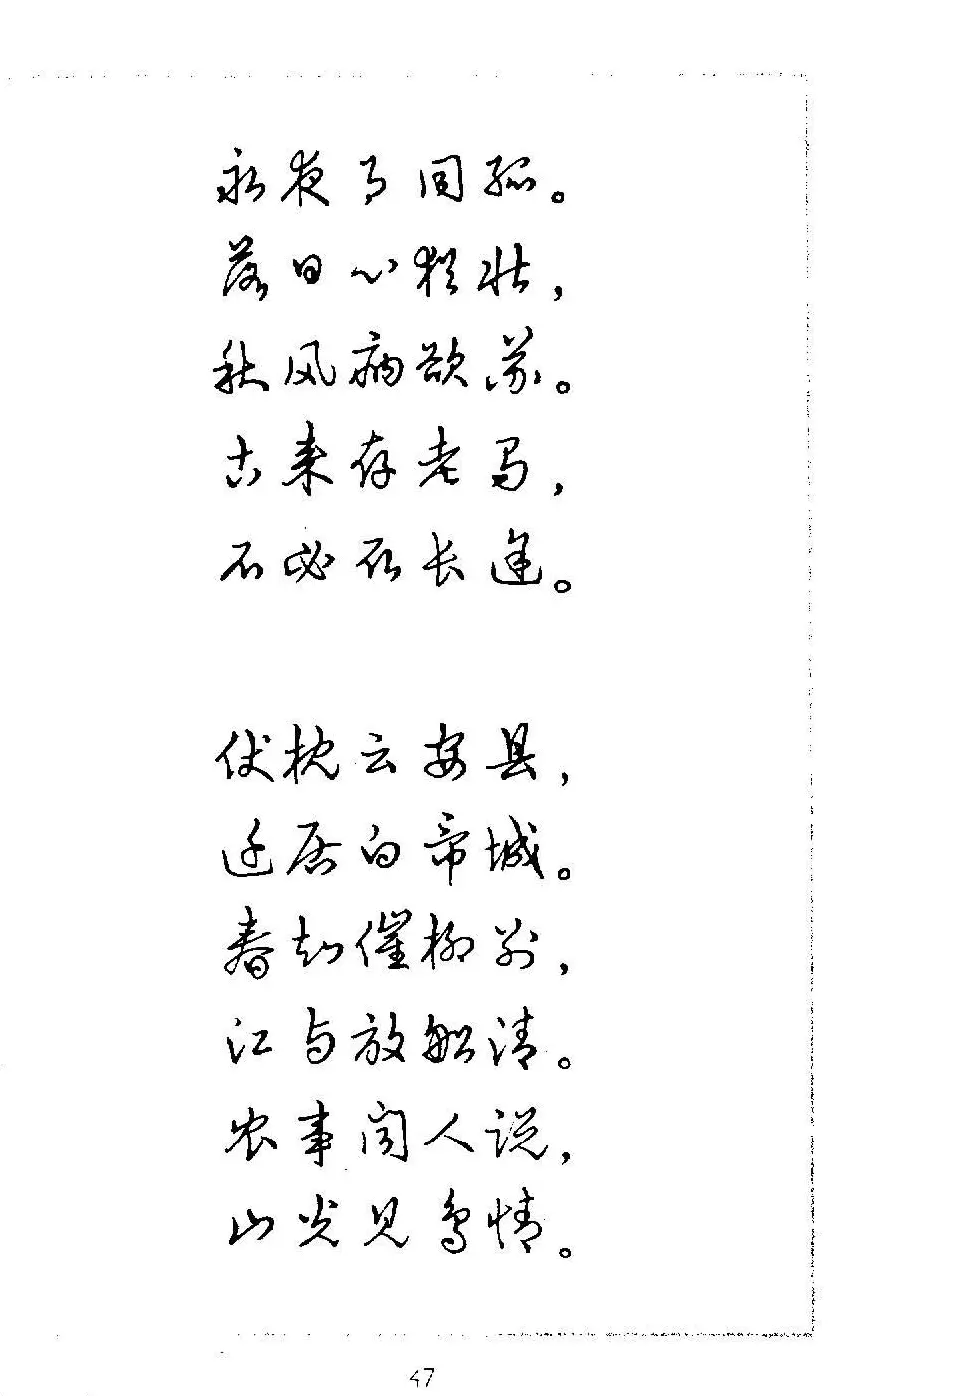 永夜月同孤。
落日心犹壮，
秋风病欲苏。
古来存老马，
不必取长途。
伏枕云安县，
迁居白帝城。
春知催柳别，
江与放船清。
农事闻人说，
山光见鸟情。
47